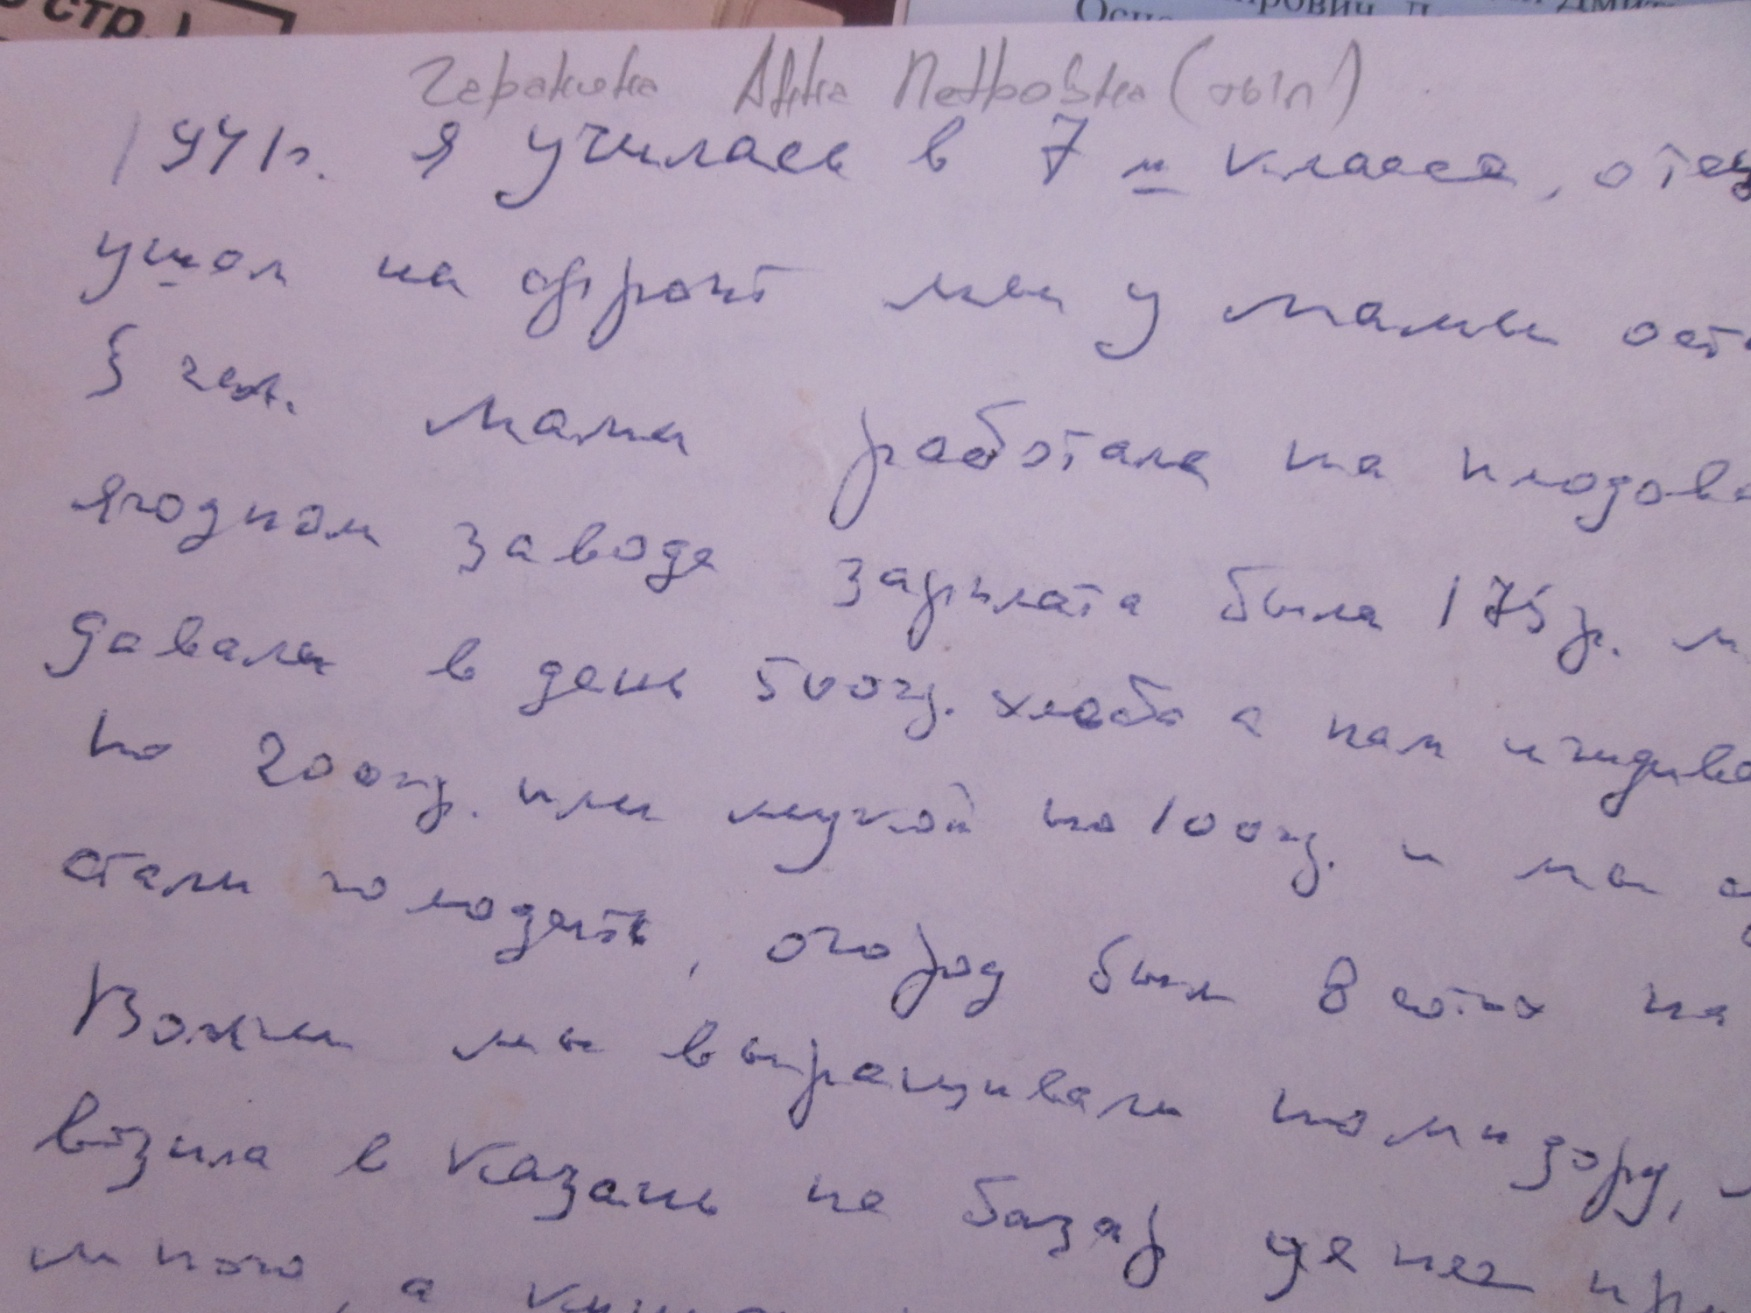 стр.)
Петровна
1941г. я училась в 7 м классе, отец
ушол на фронт мы у мамы ост
5 чел. мама работала на плодово
ягодном заводе зарплата была 175 р. м
давали в день 500гр. хлеба а нам иждиве
по 200гр. или мукой по 100гр. и мы
стали голодать, огород был 8 соток на
Волги мы выращивали помидору,
возила в казань на базар денег пр
много, а